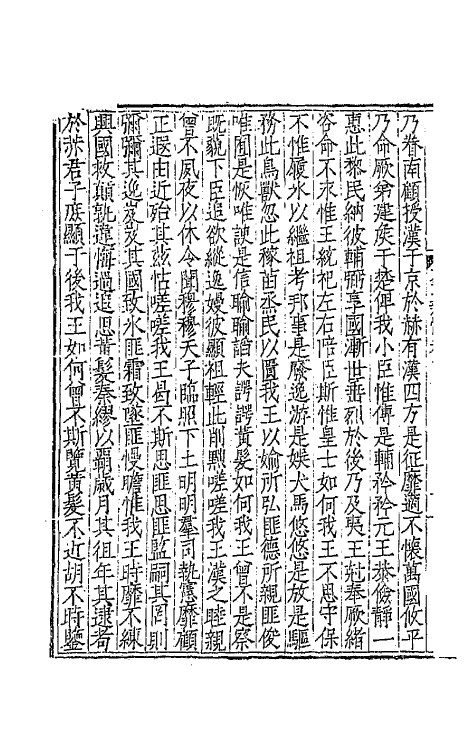 乃眷南顧授漢于京於赫有漢四方是征靡適不懷萬國攸平
乃命厥弟建矦于楚俾我小臣惟傅是輔矜矜元王恭儉靜一
惠此黎民納彼輔弼享國漸世垂烈於後乃及夷王尅奉厥緒
咨命不永惟王統祀左右陪臣斯惟皇士如何我王不思守保
不惟履冰以繼祖考邦事是廢逸游是娛犬馬悠悠是放是驅
務此鳥獸忽此稼苗烝民以匱我王以媮所弘匪德所親匪俊
唯囿是恢唯諛是信睮睮諂夫諤諤黃髮如何我王曾不是察
既藐下臣追欲縱逸嫚彼顯祖輕此削黜嗟嗟我王漢之睦親
曾不夙夜以休令聞穆穆天子臨照下土明明羣司執憲靡顧
正遐由近殆其茲怙嗟嗟我王曷不斯思匪思匪監嗣其罔則
彌彌其逸岌岌其國致冰匪霜致墜匪嫚瞻惟我王時靡不練
興國救顛孰違悔過追思黃髮秦繆以霸歲月其徂年其逮耇
於赫君子庶顯于後我王如何曾不斯覽黃髮不近胡不時鑒